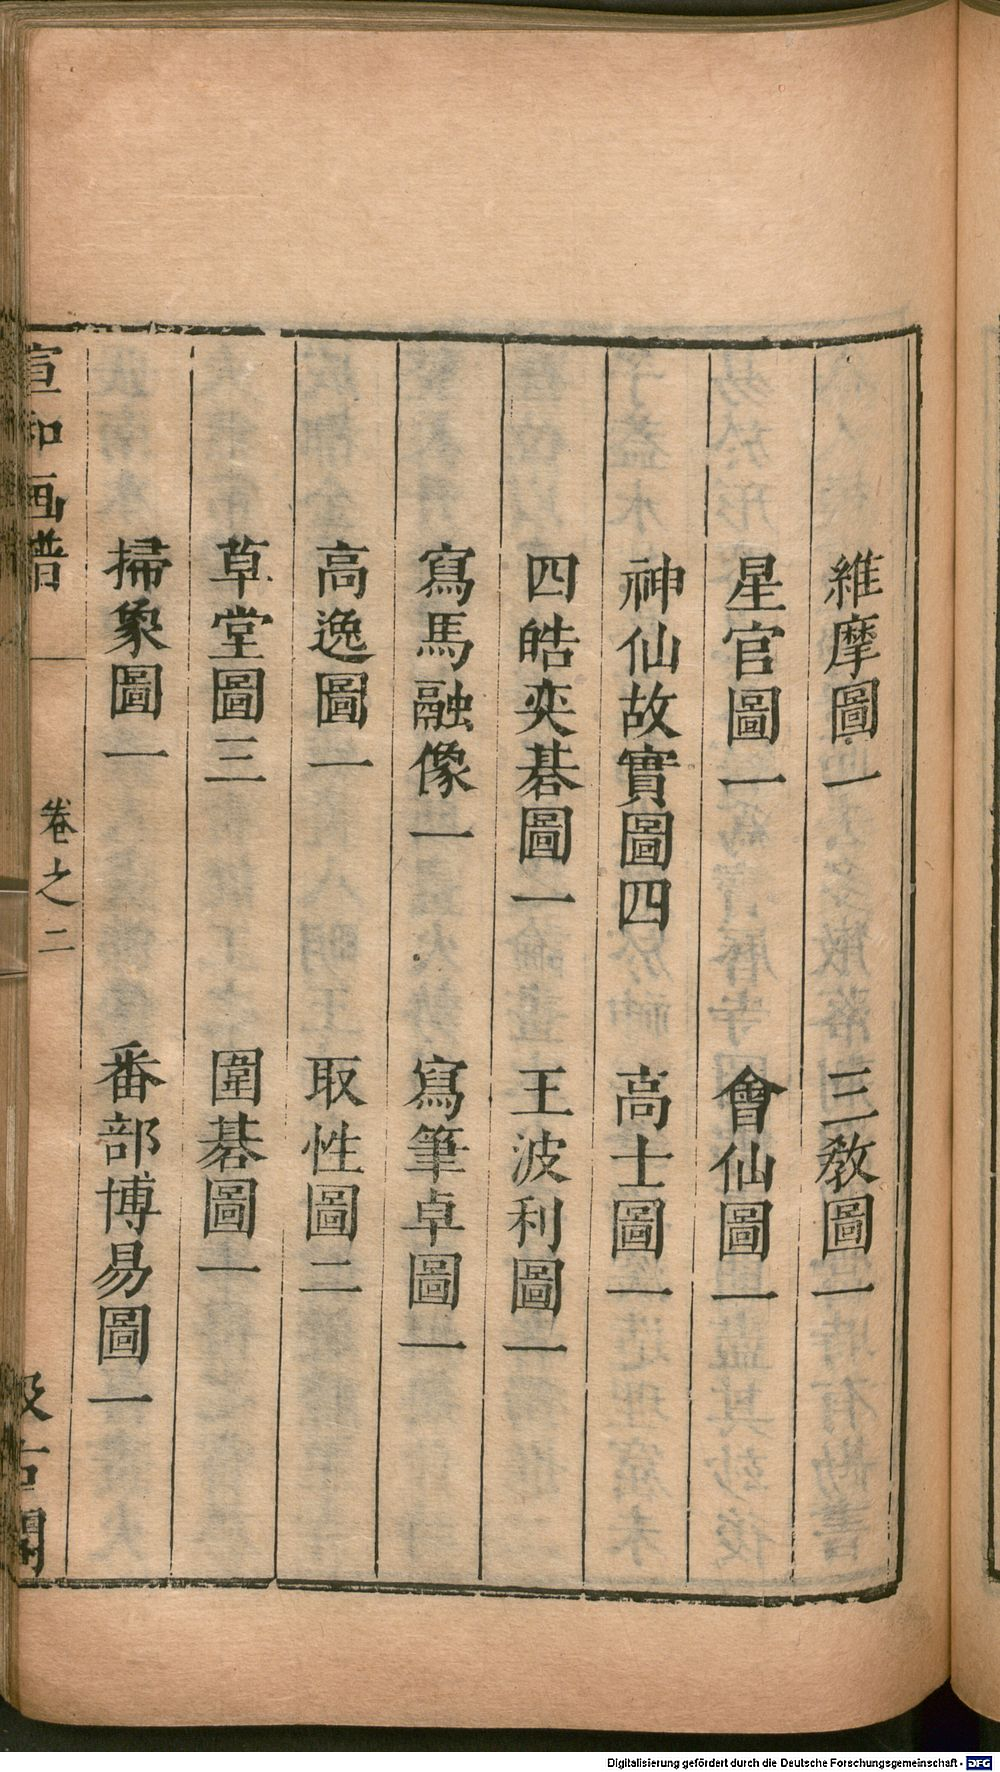 維摩圖一 三教圖一
星官圖一 會仙圖一
神仙故實圖四 高士圖一
四皓奕碁圖一 王波利圖一
寫馬融像一 寫筆卓圖一
高逸圖一 取性圖二
草堂圖三 圍碁圖一
掃象圖一 番部博易圖一
宣和画譜 卷之二 汲古閣
Digitalisierung gefördert durch die Deutsche Forschungsgemeinschaft - DFG